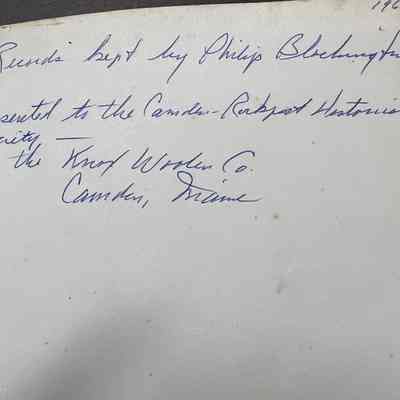 196
Records kept by Philip Blethington
sented to the Camden-Rockport Historic
ciety —
the Knox Woolen Co.
Camden, Maine